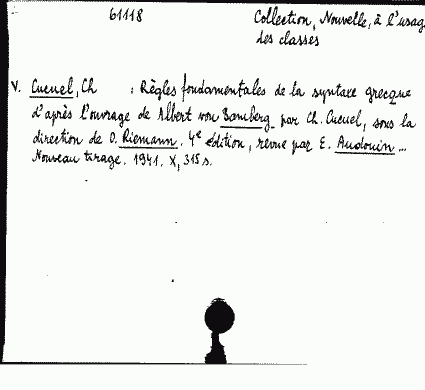 61118
Collection, Nouvelle, à l'usag
des classes
V. Cucuel, Ch : Règles fondamentales de la syntaxe grecque
d'après l'ouvrage de Albert von Bamberg par Ch. Cucuel, sous la
direction de O. Riemann. 4e édition, revue par E. Audouin...
Nouveau tirage. 1941. X, 315 s.